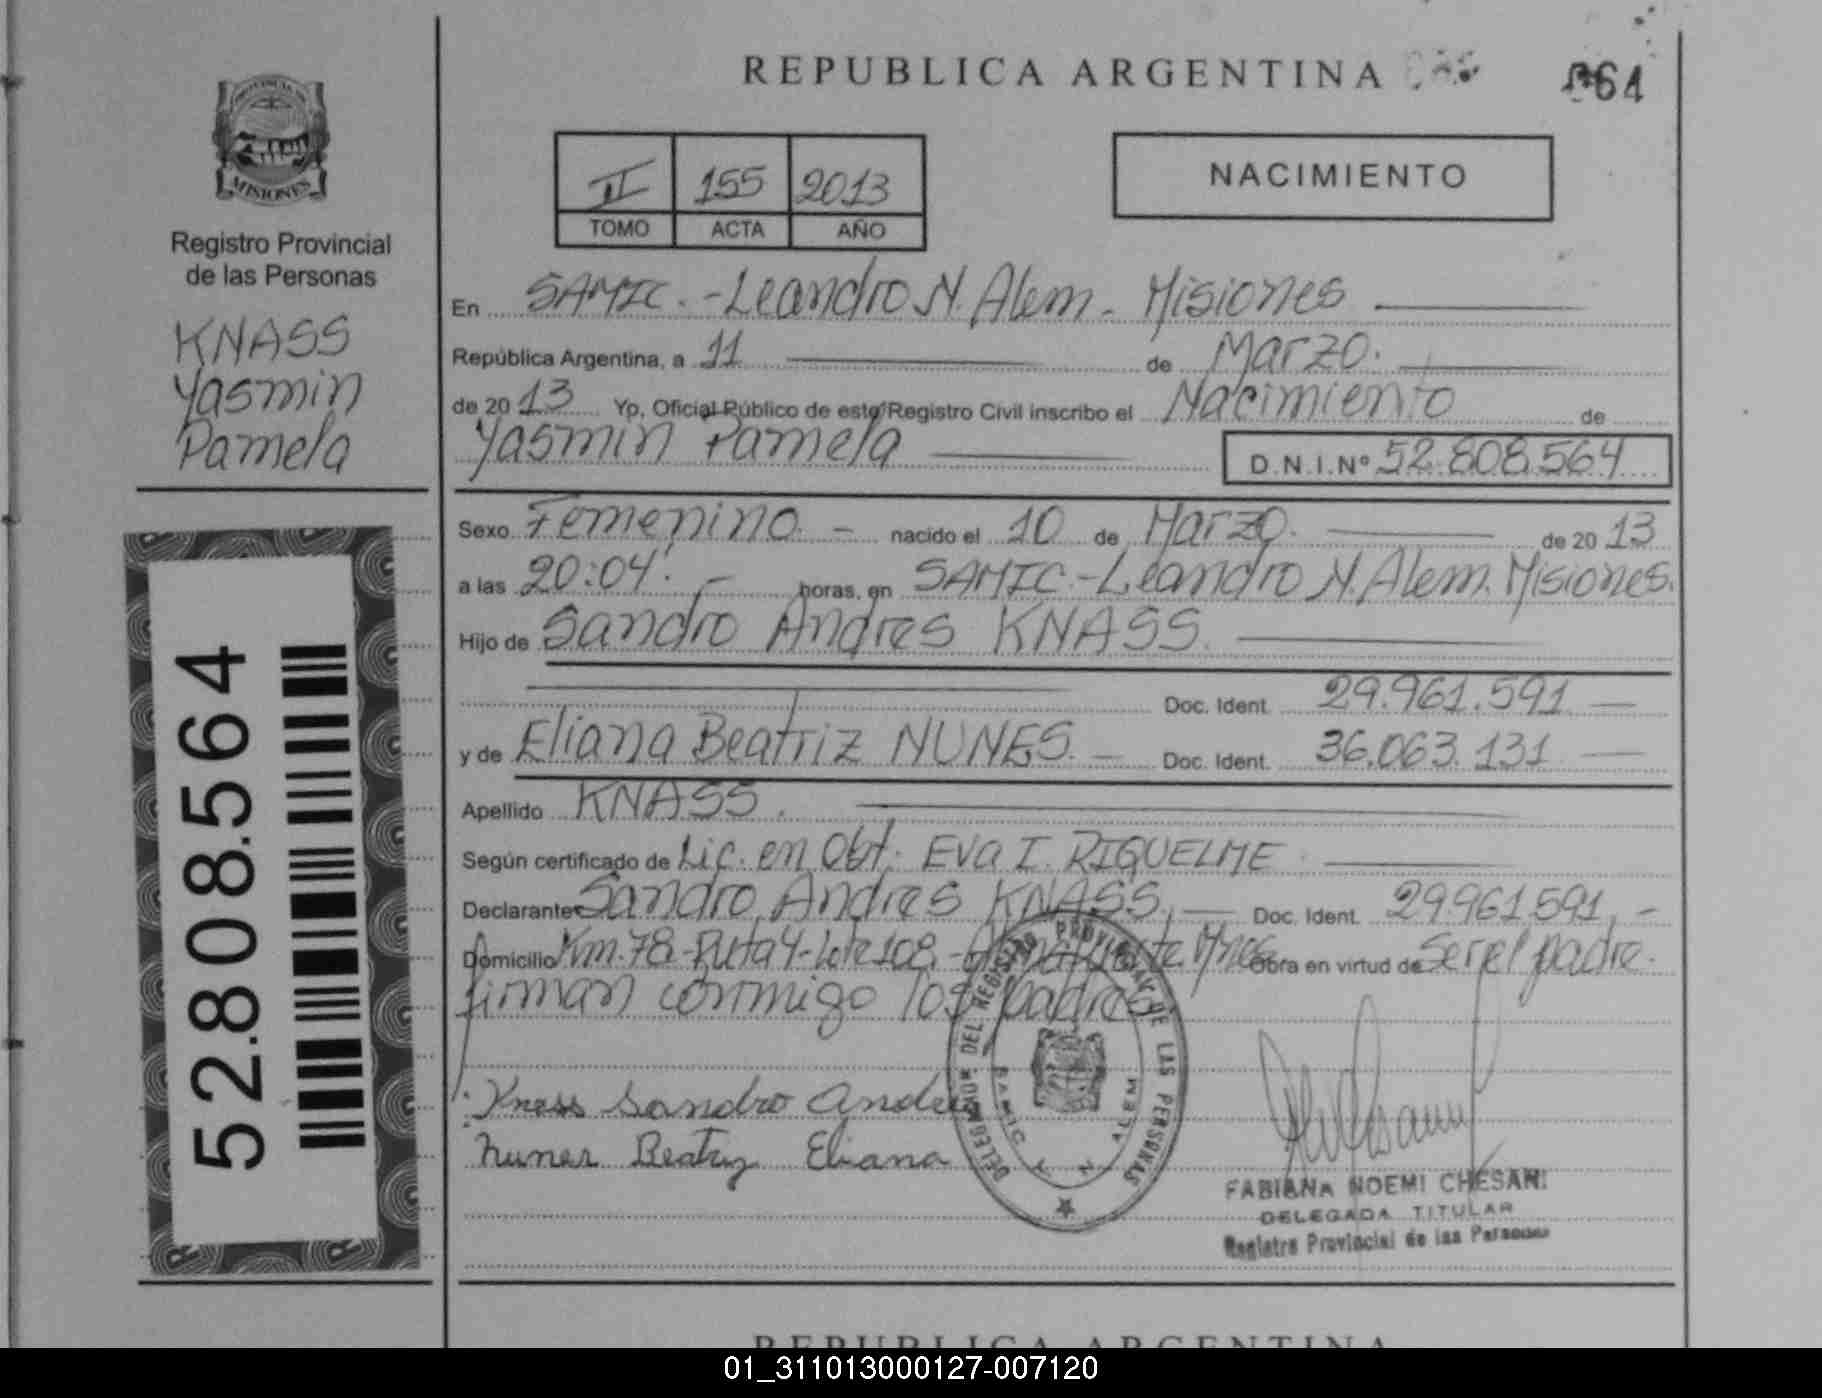 REPUBLICA ARGENTINA
064
PROVINCIA DE
MISIONES
Registro Provincial
de las Personas
KNASS
Yasmin
Pamela
52.808.564
II 155 2013
TOMO ACTA AÑO
NACIMIENTO
En SAMIC.-Leandro N. Alem - Misiones
República Argentina, a 11 de Marzo.
de 20 13 Yo, Oficial Público de este Registro Civil inscribo el Nacimiento de
Yasmin Pamela D.N.I.Nº 52.808.564
Sexo Femenino. - nacido el 10 de Marzo. de 20 13
a las 20:04'. - horas, en SAMIC.-Leandro N. Alem. Misiones.
Hijo de Sandro Andres KNASS.
Doc. Ident. 29.961.591
y de Eliana Beatriz NUNES. - Doc. Ident. 36.063.131
Apellido KNASS.
Según certificado de Lic. en Obt. Eva I. RIQUELME
Declarante Sandro Andres KNASS, - Doc. Ident. 29.961.591, -
Domicilio Km.78-Ruta 4-Lote 108.- Mnes. Obra en virtud de Ser el padre.
firman conmigo los padres
Knass Sandro Andres
Nunes Beatriz Eliana
DELEGADA DEL REGISTRO PROVINCIAL DE LAS PERSONAS
SAMIC L N ALEM
FABIANA NOEMI CHESANI
DELEGADA TITULAR
Registro Provincial de las Personas
REPUBLICA ARGENTINA
01_311013000127-007120